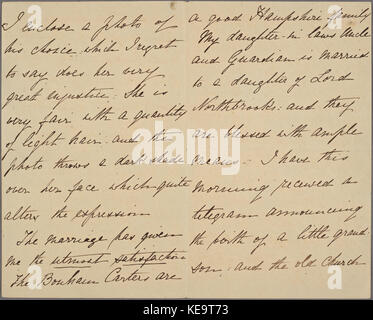 I enclose a photo of
his choice which I regret
to say, does her very
great injustice. She is
very fair with a quantity
of light hair and the
photo throws a dark shade
over her face which quite
alters the expression
The marriage has given
me the utmost satisfaction
The Bonham Carters are
a good Hampshire family
My daughter in laws Uncle
and Guardian is married
to a daughter of Lord
Northbrooks: and they
are blessed with ample
means - I have this
morning received a
telegram announcing
the birth of a little grand
son, and the old Church
alamy
Image ID: KE9T73
www.alamy.com